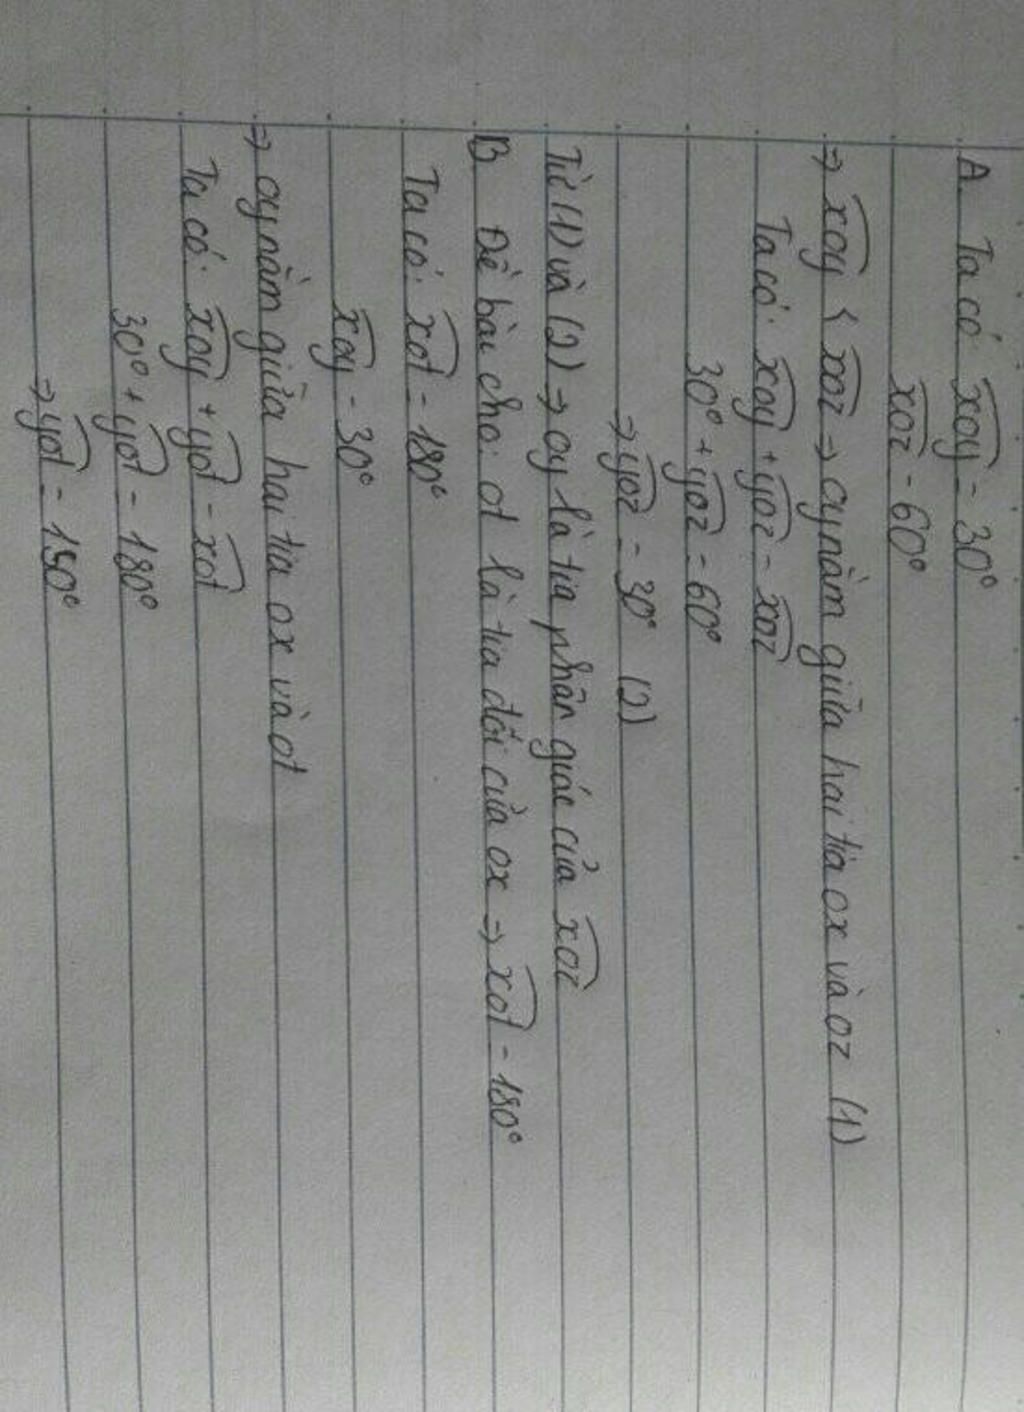 A Ta có: xoy = 30°
xoz = 60°
=> xoy < xoz => oy nằm giữa hai tia ox và oz (1)
Ta có: xoy + yoz = xoz
30° + yoz = 60°
=> yoz = 30° (2)
Từ (1) và (2) => oy là tia phân giác của xoz
B Đề bài cho: ot là tia đối của ox => xot = 180°
Ta có: xot = 180°
xoy = 30°
=> oy nằm giữa hai tia ox và ot
Ta có: xoy + yot = xot
30° + yot = 180°
=> yot = 150°